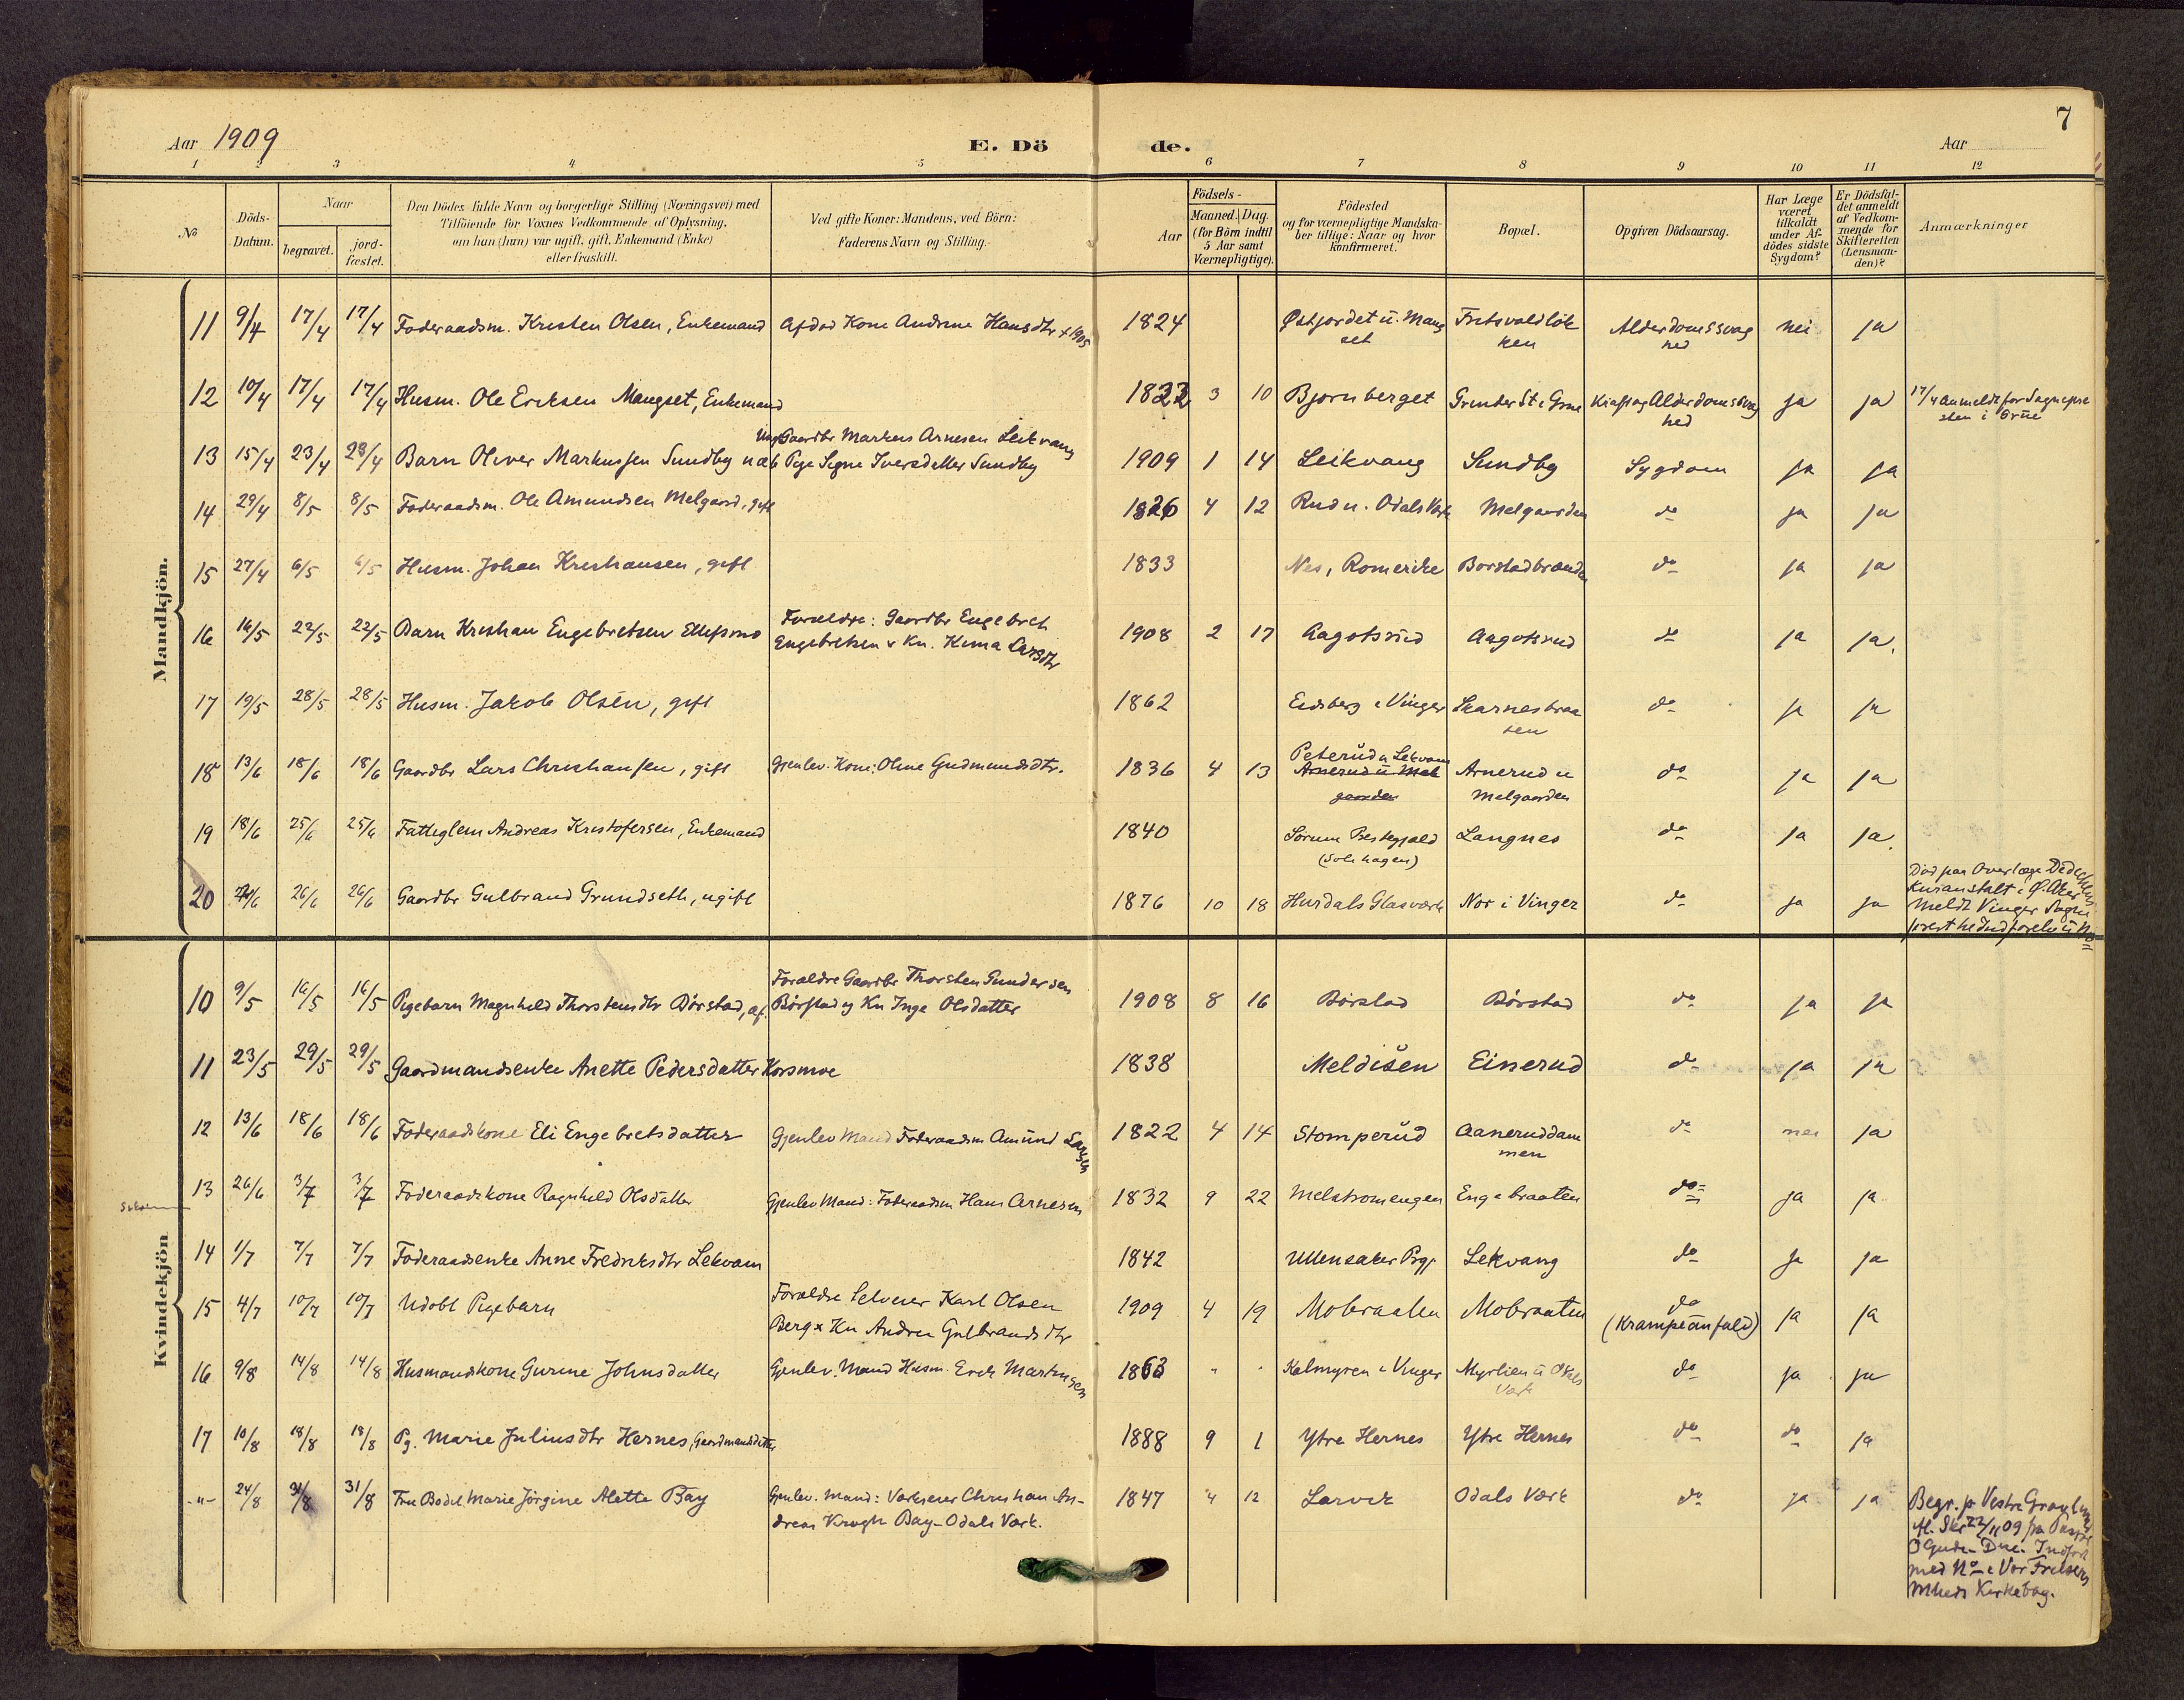 7
Aar 1909 E. Dö de. Aar
1 2 3 4 5 6 7 8 9 10 11 12
No
Döds-Datum.
Naar
begravet.
jord-fæstet.
Den Dödes fulde Navn og borgerlige Stilling (Næringsvei) med
Tilföiende for Voxnes Vedkommende af Oplysning,
om han (hun) var ugift, gift, Enkemand (Enke)
eller fraskilt.
Ved gifte Koner: Mandens, ved Börn:
Faderens Navn og Stilling.
Aar
Födsels-
Maaned. Dag.
(for Börn indtil
5 Aar samt
Værnepligtige).
Födested
og for værnepligtige Mandska-
ber tillige: Naar og hvor
konfirmeret.
Bopæl.
Opgiven Dödsaarsag.
Har Læge
været
tilkaldt
under Af-
dödes sidste
Sygdom?
Er Dödsfal-
det anmeldt
af Vedkom-
mende for
Skifteretten
(Lensman-
den)?
Anmærkninger
Mandkjön.
11 9/4 17/4 17/4 Foderaadsm. Kristen Olsen, Enkemand Afdød Kone Andrine Hansdtr + 1905 1824 Østjordet u. Mang Alderdomssvag nei ja
set ken hed
12 10/4 17/4 17/4 Husm. Ole Eriksen Mangset, Enkemand 1822 3 10 Bjørnberget Grinder St. i Grue Alderdomssvag ja ja 17/4 anmeldt for Sognepre
hed sten i Grue
Gaardbr Markus Arnesen Leikvang
13 15/4 23/4 23/4 Barn Oliver Markussen Sundby Pige Signe Iversdatter Sundby 1909 1 14 Leikvang Sundby Sygdom ja ja
14 29/4 8/5 8/5 Foderaadsm. Ole Amundsen Melgaard, gift 1826 4 12 Rud u. Odals Værk Melgaarden do ja ja
15 27/4 6/5 6/5 Husm. Johan Kristiansen, gift 1833 Nes, Romerike Borstadbraaten do ja ja
Forældre: Gaardbr Engebret
16 16/5 22/5 22/5 Barn Kristian Engebretsen Engebretsen & Kn. Larsdtr 1908 2 17 Aagotsrud Aagotsrud do ja ja.
17 19/5 28/5 28/5 Husm. Jakob Olsen, gift 1862 Eidsberg i Vinger Skarnesbraa do ja ja
ten
Peterud u Lekvam
18 13/6 18/6 18/6 Gaardbr Lars Christiansen, gift Gjenlev. Kone: Oline Gudmundsdtr. 1836 4 13 Arnerud u Mel Arnerud u do ja ja
gaarden Melgaarden
19 18/6 25/6 25/6 Fattiglem Andreas Kristofersen, Enkemand 1840 Sørum Prestegjæld Langnes do ja ja.
(Solihagen)
20 26/6 26/6 Gaardbr Gulbrand Grundseth, ugift 1876 10 18 Hurdals Glasværk Nor i Vinger do ja ja
Død paa Overlæge
Kuranstalt i Ø. Aker
Meldt Vinger Sogne
Kvindekjön
Forældre Gaardbr Thorsten Gundersen
10 9/5 16/5 16/5 Pigebarn Magnhild Thorstensdtr Børstad, af. Børstad og Kn Inge Olsdatter 1908 8 16 Børstad Børstad do ja ja
11 23/5 29/5 29/5 Gaardmandsenke Anette Pedersdatter Korsmoe 1838 Meldisen Einerud do ja ja
12 13/6 18/6 18/6 Foderaadskone Eli Engebretsdatter Gjenlev Mand Foderaadsm Amund Larsen 1822 4 14 Stomperud Aaneruddam do nei ja
men
13 26/6 3/7 3/7 Foderaadskone Ragnhild Olsdatter Gjenlev Mand: Foderaadsm Hans Arnesen 1832 9 22 Melstromengen Engebraaten do ja ja
14 1/7 7/7 7/7 Foderaadsenke Anne Fredriksdtr Lekvam 1842 Ullensaker Prgj. Lekvang do ja ja
15 4/7 10/7 10/7 Udøbt Pigebarn Forældre Selveier Karl Olsen 1909 4 19 Mobraaten Mobraaten do ja ja
Berg & Kn Andrea Gulbrandsdtr (Krampeanfald)
16 9/8 14/8 14/8 Husmandskone Gurine Johnsdatter Gjenlev. Mand Husm. Erik Martinsen 1863 " " Kalmyren i Vinger Myrlien u Odals do ja ja
Værk
17 10/8 18/8 18/8 Pg. Marie Juliusdtr Hernes, Gaardmandsdatter 1888 9 1 Ytre Hernes Ytre Hernes do do ja
-"- 24/8 31/8 31/8 Fru Bodil Marie Jörgine Alette Bay Gjenlev. Mand: Værkseier Christian An- 1847 4 12 Larvik Odals Værk do ja ja
dreas Krogh Bay - Odals Værk.
Begr. p. Vestre Gravlund
fl. Skr 22/11 09 fra
Indført
med No i Vor Frelsers
Mheds Kirkebog.